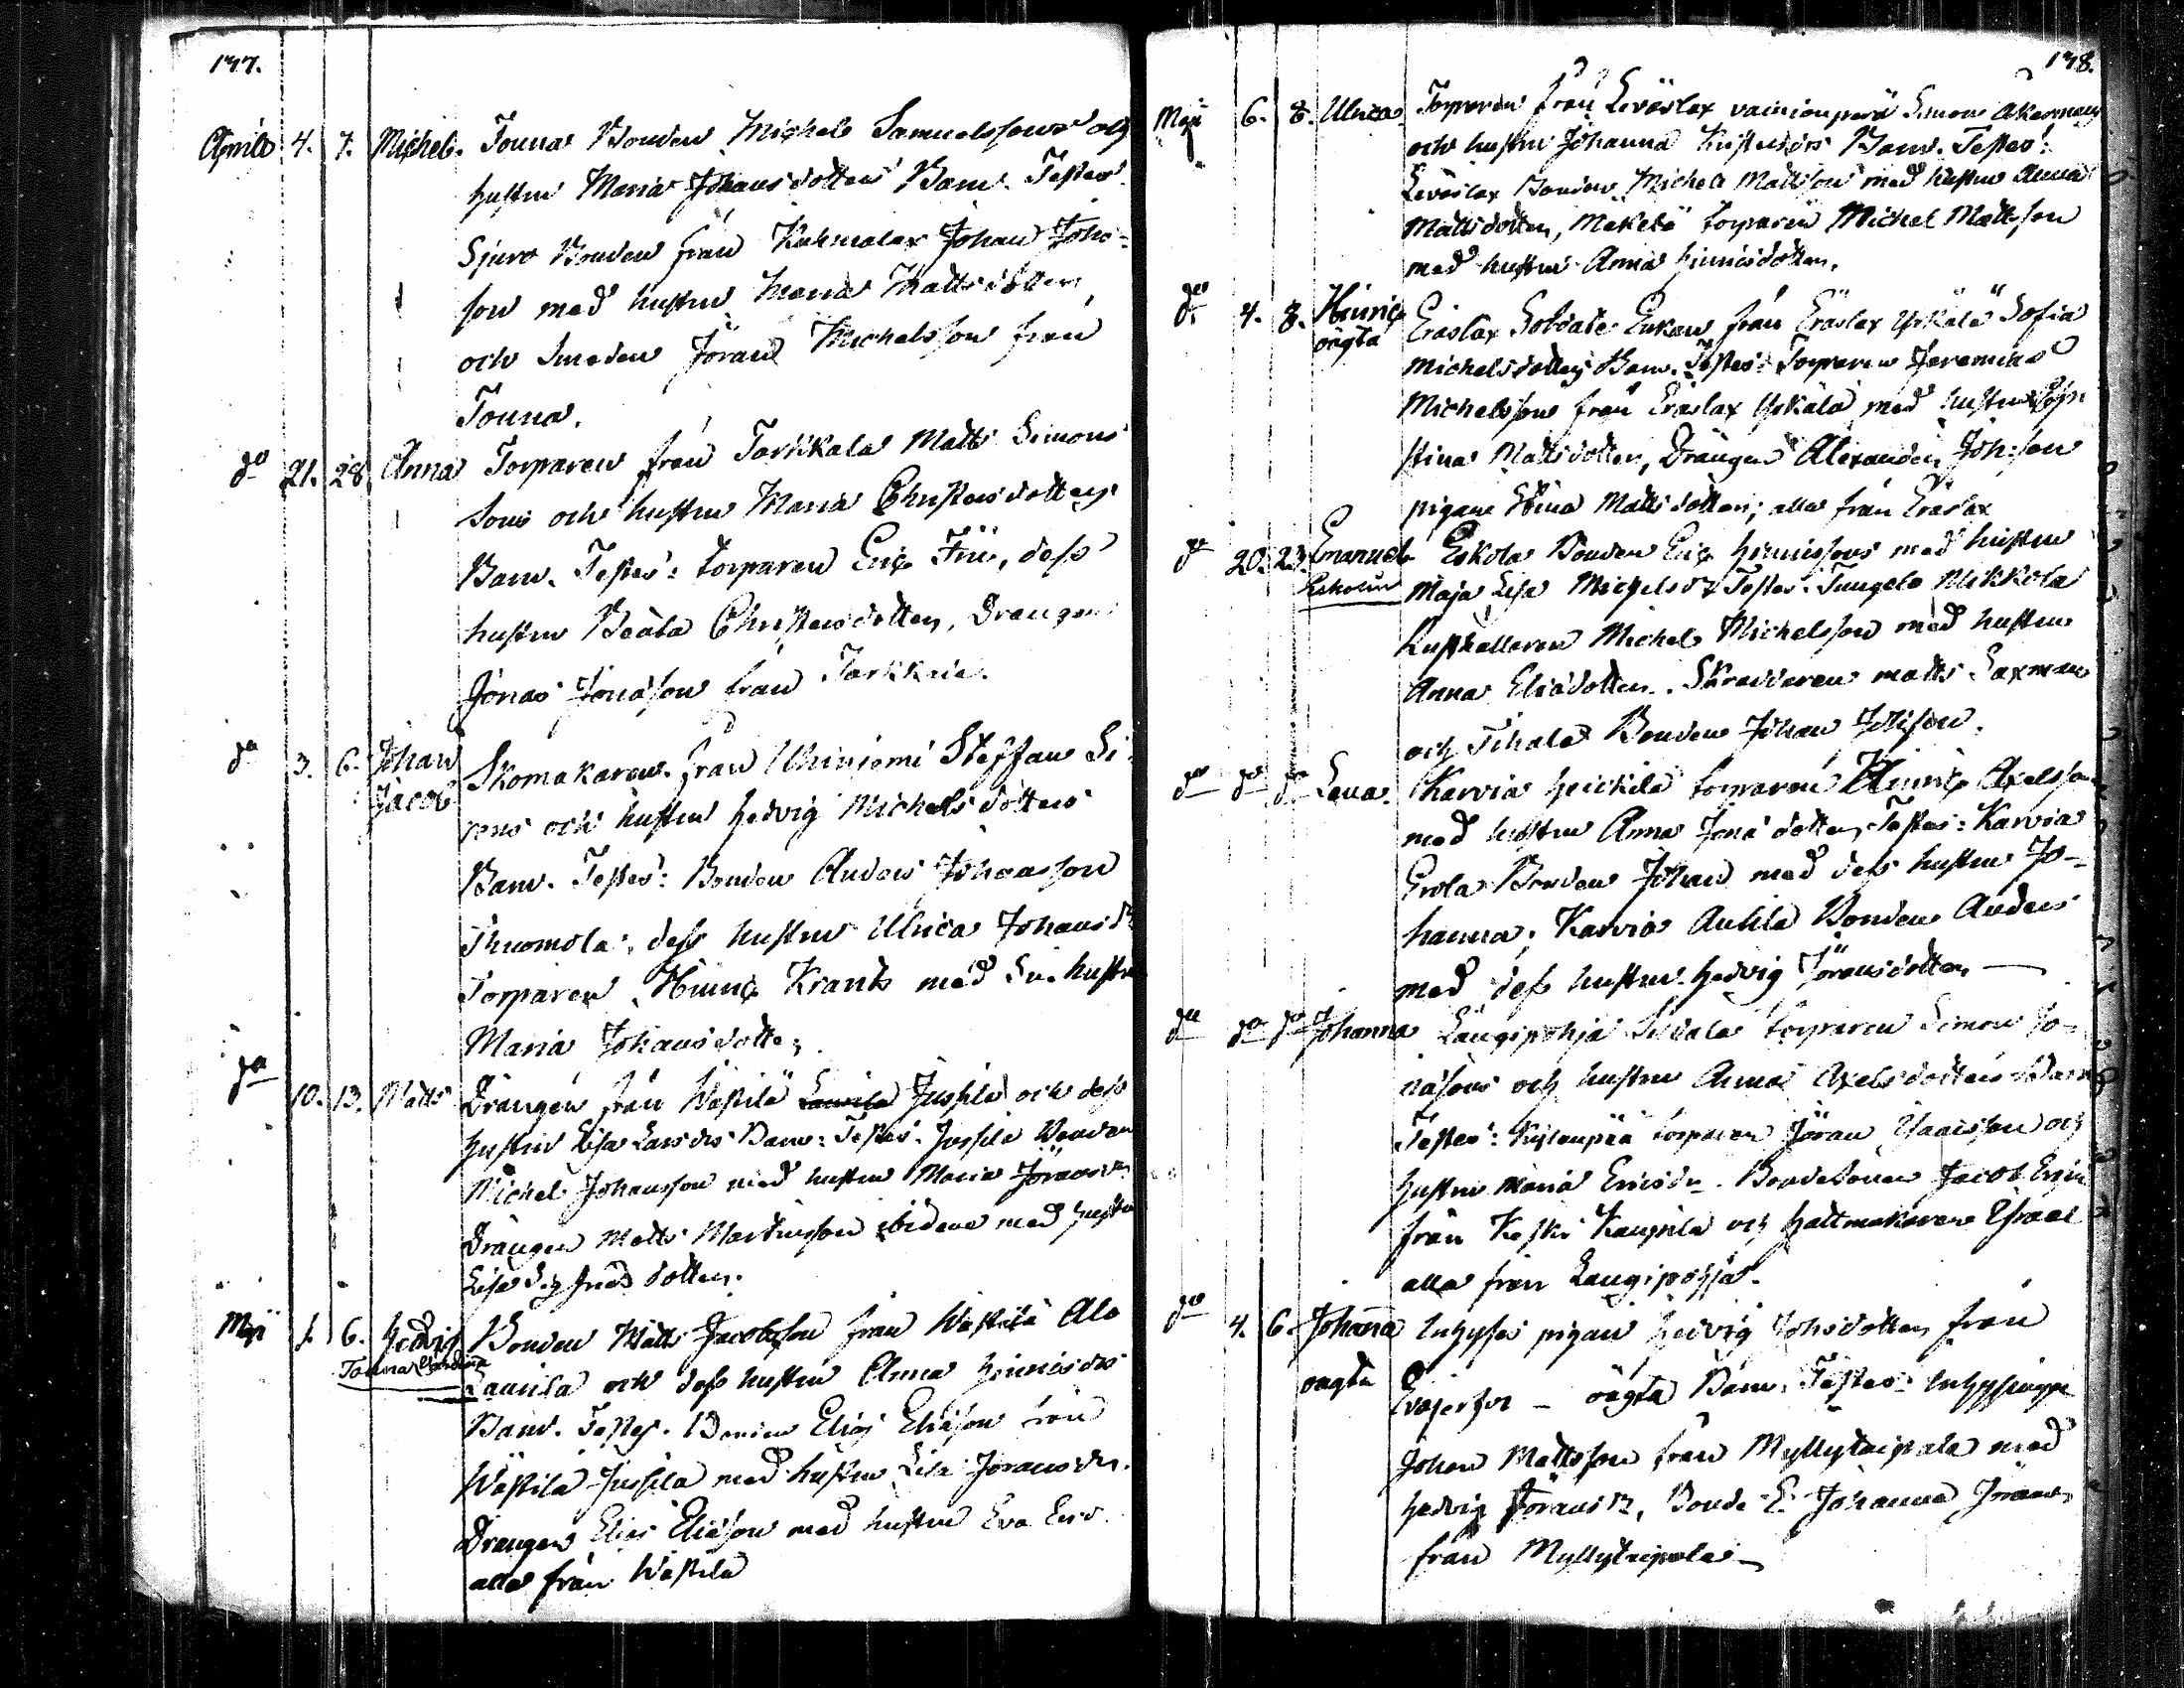 147.
Aprilis 4. 7. Michel. Touna Bonden Michel Samuelssons och
hustru Maria Johansdotters Barn. Testes
Bonden från Kuhmalax Johan Johs-
son med hustru Maria Mattsdotter,
och Smeden Jöran Michelsson från
Touna.
do 21. 28 Anna Torparen från Tarkkala Matts Simons
sons och hustru Maria Christersdotters
Barn. Testes: torparen Eric Frii, dess
hustru Beata Christersdotter, Drängen
Jonas Jonasson från
do 3. 6. Johan Skomakaren från Steffan Si-
Jacob
rens och hustru Hedvig Michelsdotters
Barn. Testes: Bonden Anders Johansson
Thuomola, dess hustru Ulrica Johansdr
Torparen Hinric Krants med Sin hustru
Maria Johansdotter.
do 10. 13. Matts Drängen från Wästilä Jussila och dess
hustru Lisa Larsdrs Barn: Testes: Jussila Bonden
Michel Johansson med hustru Maria Jöransdr
Drängen Matts Martinsson ibidem med hustru
Lisa dotter.
Maji 1. 6. Hedvig Bonden Matts Jacobsson från Wästilä Ala
Laurila och dess hustru Anna Hinricsdrs
Barn. Testes. Bonden Elias Eliasson från
Wästilä Jussila med hustru Lisa Jöransdr.
Drängen Elias Eliasson med hustru Eva
alla från Wästilä
148.
Maji 6. 8. Ulrica Torparen från Leväslax vainionperä Simon Åkermans
och hustru Johanna Barn. Testes:
Leväslax Bonden Michel Mattsson med hustru Anna
Mattsdotter, Mäkelä torparen Michel Mattsson
med hustru Anna Hinricsdotter.
do 4. 8. Hinric Eräslax Soldate Enkan från Eräslax Yrkälä Sofia
oägta
Michelsdotters Barn. Testes: Torparen Jeremias
Michelsson från Eräslax Yrkälä med hustru
stina Mattsdotter, Drängen Alexander Johsson
pigan Stina Mattsdotter; alla från Eräslax
do 20. 23. Emanuel Eskola Bonden Eric Hinricssons med hustru
Maja Lisa Michelsdr Testes: Tungelo Mikkola
Rusthållaren Michel Michelsson med hustru
Anna Eliædotter. Skräddaren Matts Laxman
och Tihala Bonden Johan Johsson.
do do do Lena. Karvia Heickilä torparen Hinric Axelsson
med hustru Anna Jonædotter, Testes: Karvia
Erola Bonden Johan med dess hustru Jo-
hanna; Karvia Anttila Bonden Anders
med dess hustru Hedvig Jöransdotter —
do do do Johanna Längipohja torparen Simon Jo-
nasons och hustru Anna Axelsdotters Barn
Testes: torparen Jöran Isaacsson och
hustru Maria Ericsdr. Bondesonen Jacob
från Keski Kaupila och Hattmakaren Israel
alla från Längipohja.
do 4. 6. Johanna Inhyses pigan Hedvig Johsdotter från
oägta
Evajerfvi – oägta Barn. Testes:
Johan Mattsson från Myllytaipale med
Hedvig Jöransdr, Johanna
från Myllytaipale